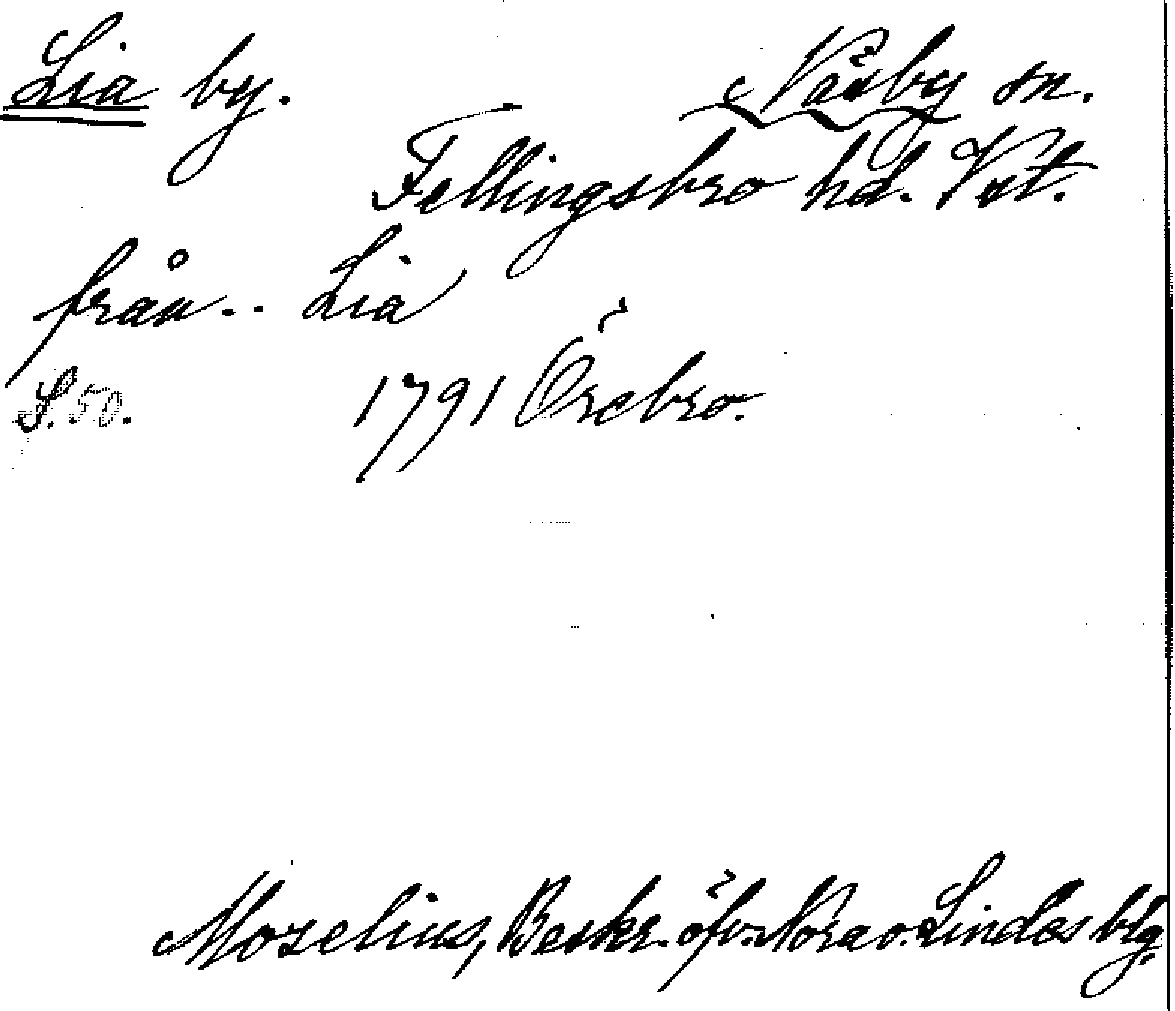 Lia by. Näsby sn.
Fellingsbro hd. Vst.
från.. Lia
S. 50. 1791 Örebro.
Mozelius, Beskr. öfv. Nora o. Lindes blg.